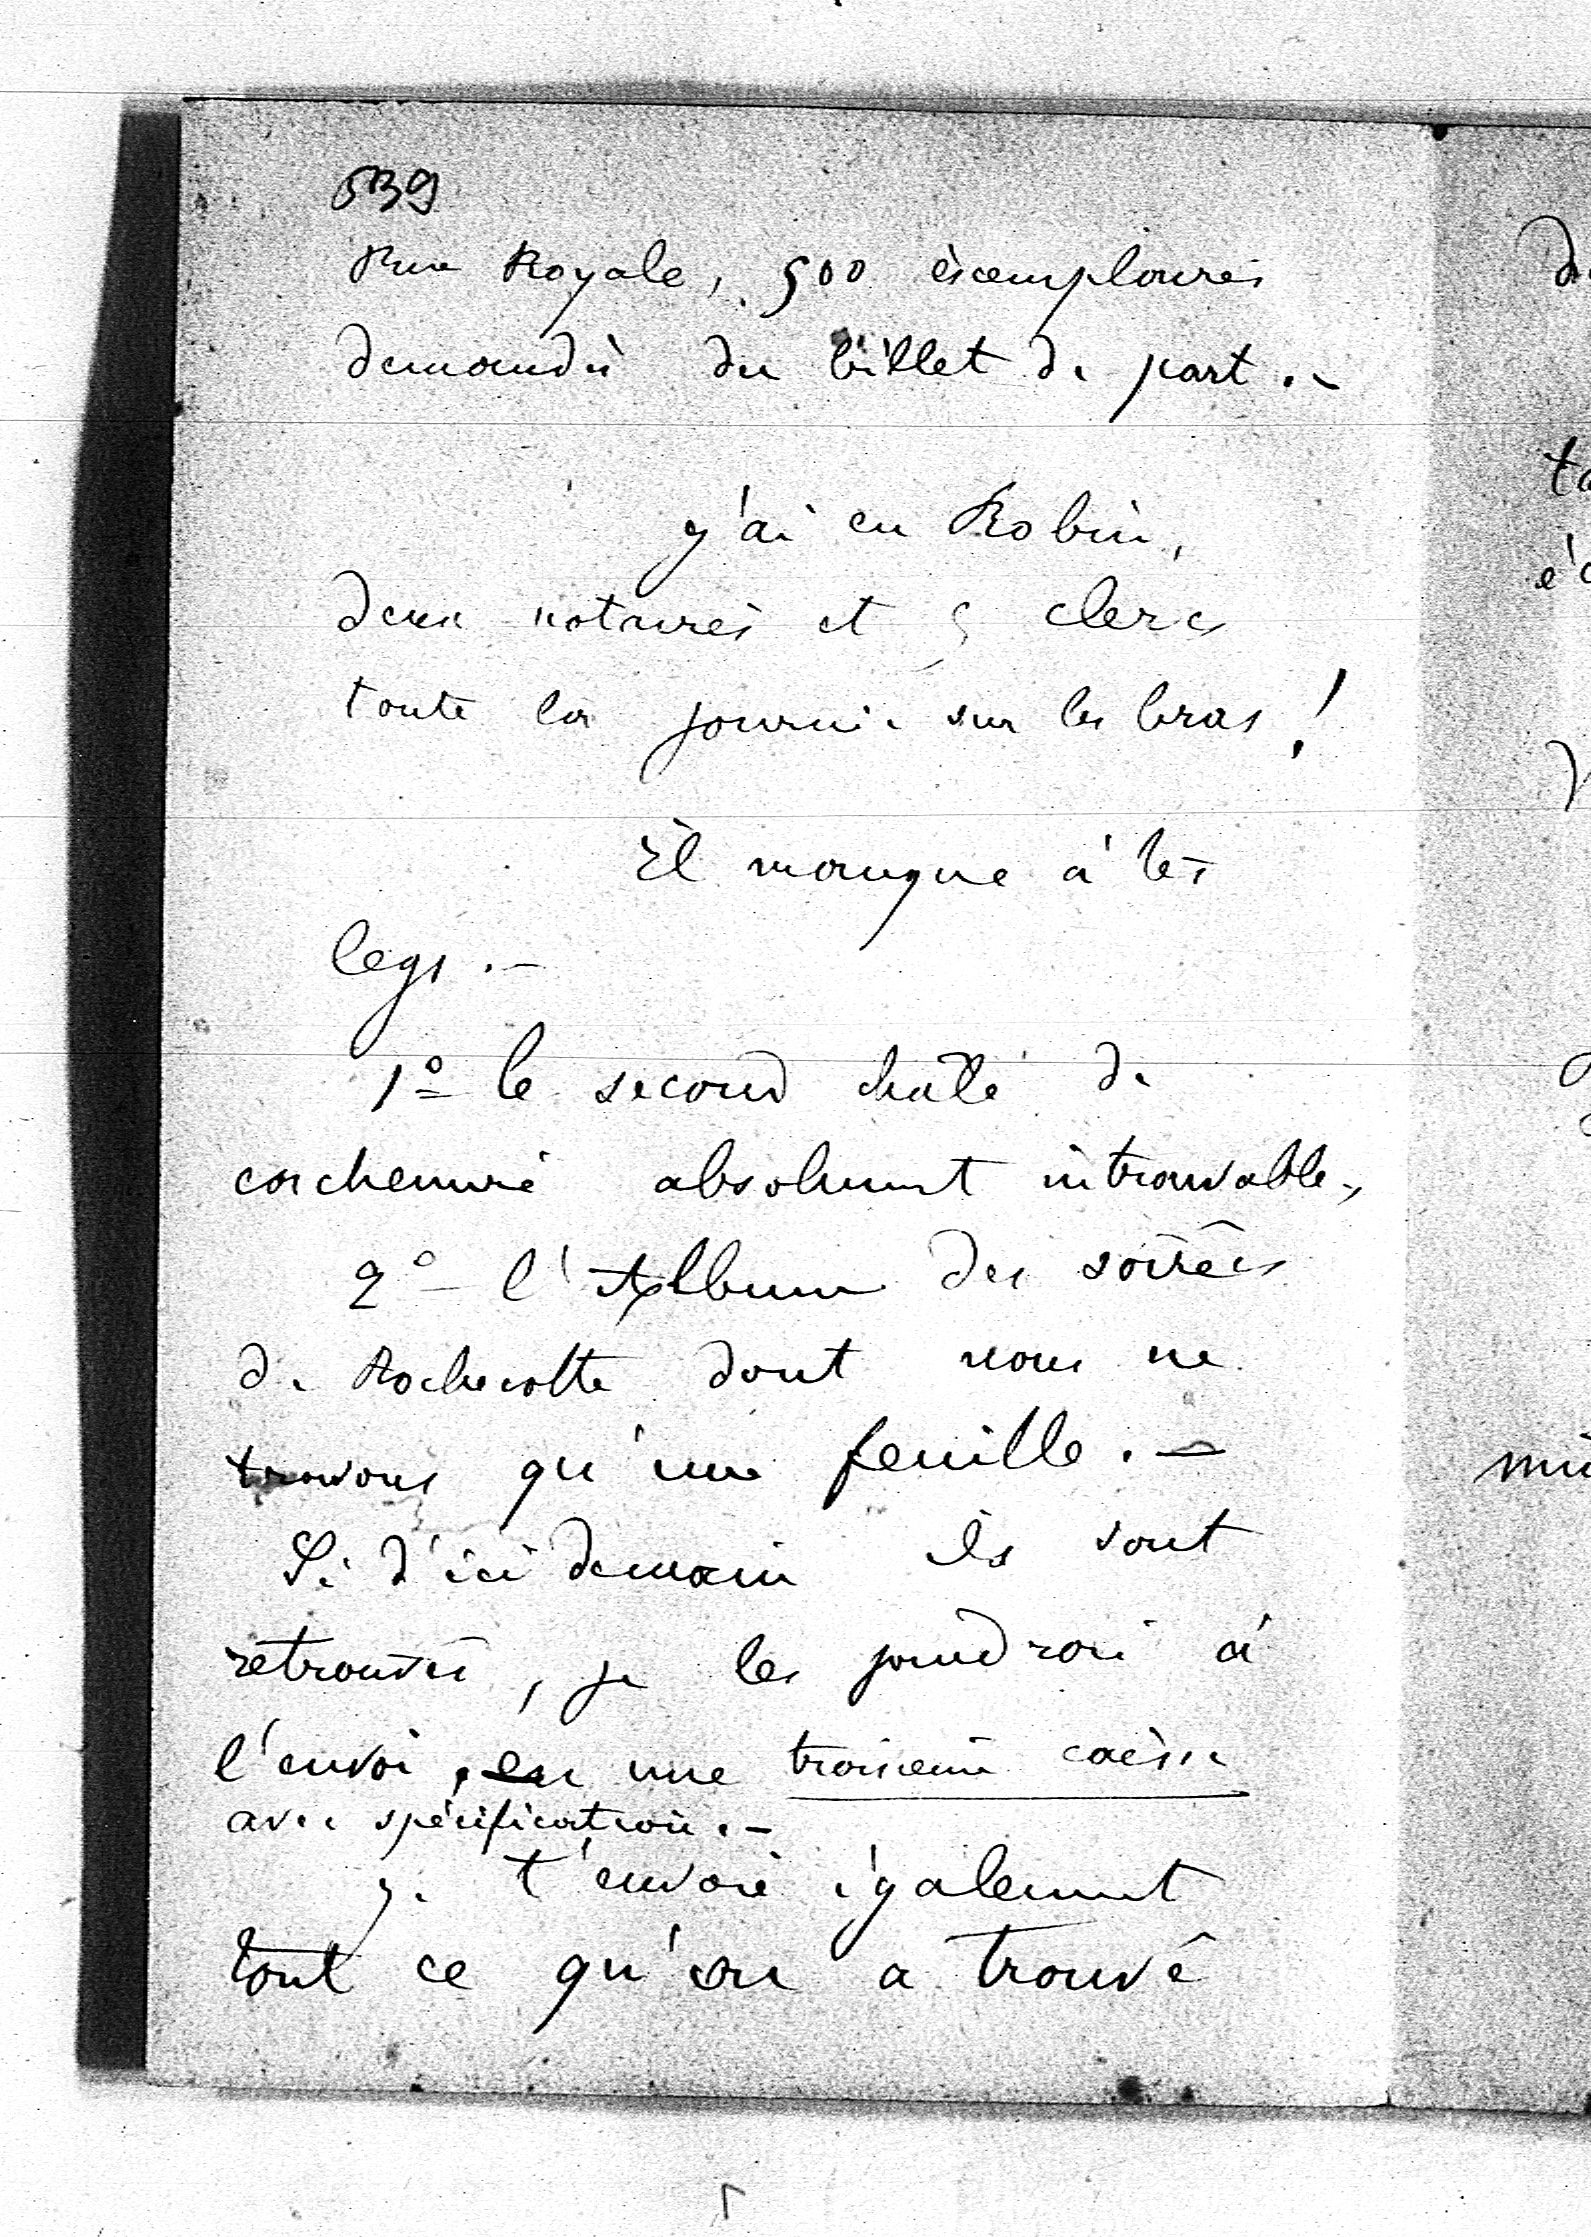 539
Rue Royale, 500 exemplaires
demandés du billet de part. -
J'ai eu Robin,
deux notaires et 5 clercs
toute la journée sur les bras !
Il manque à tes
legs. -
1º le second châle de
cachemire absolument introuvable,
2º l'Album des soirées
de Rochecotte dont nous ne
trouvons qu'une feuille. -
Si d'ici demain ils sont
retrouvés, je les joindrai à
l'envoi, en une troisième caisse
avec spécification. -
Je t'envoie également
tout ce qu'on a trouvé